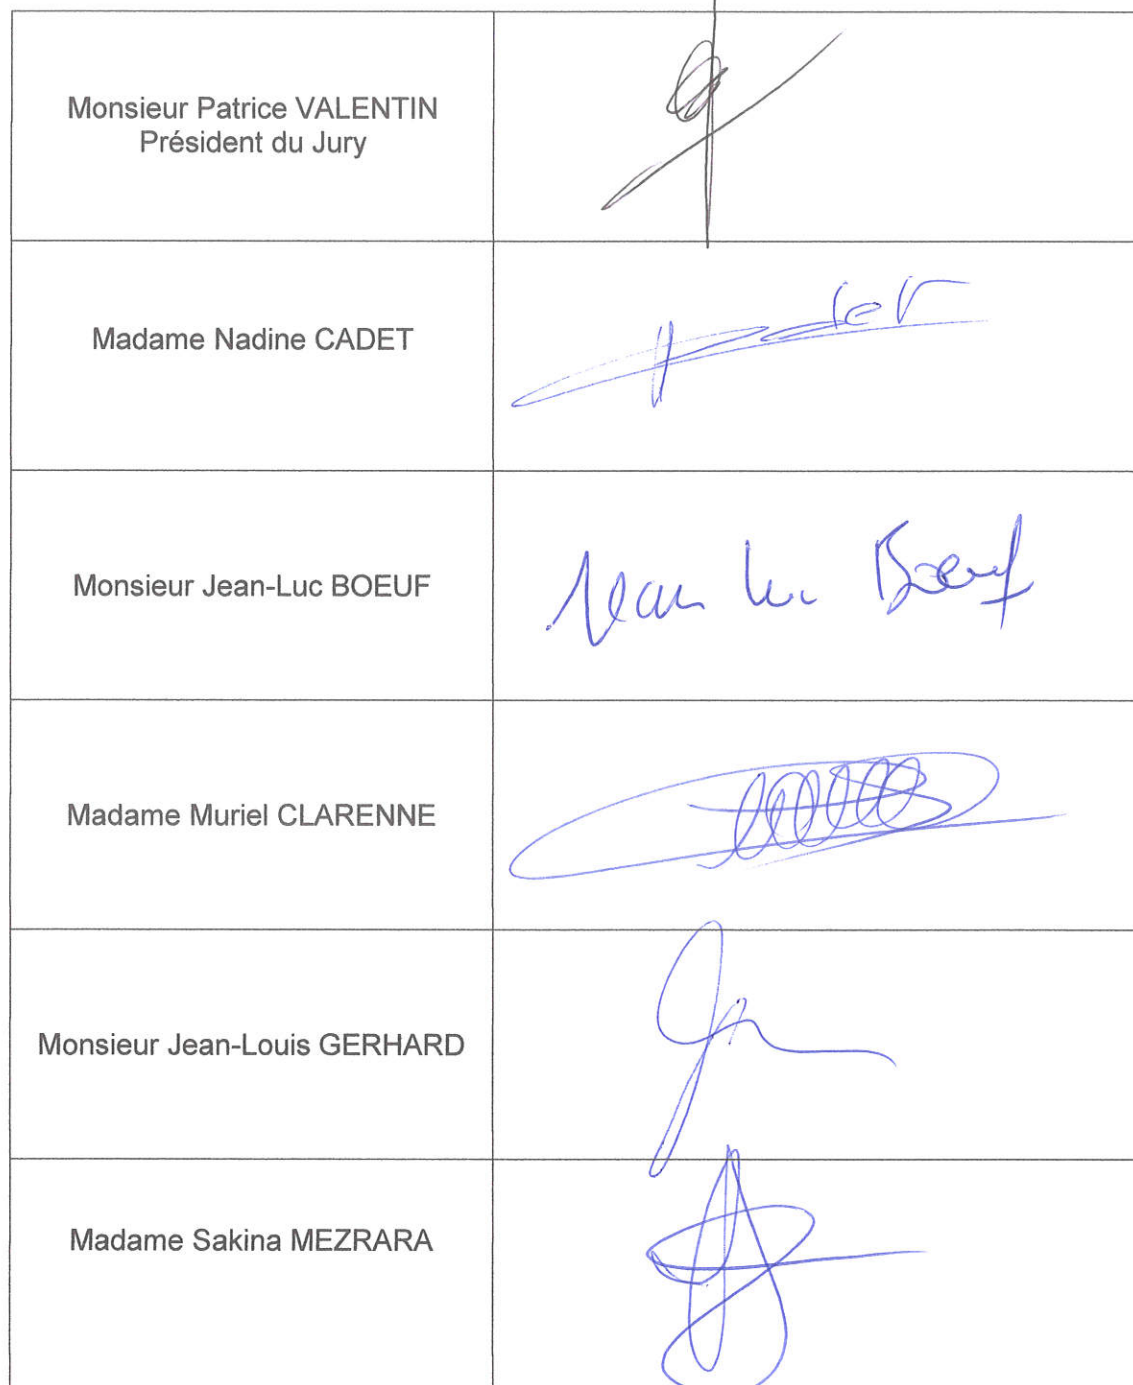 Monsieur Patrice VALENTIN
Président du Jury
Madame Nadine CADET
Monsieur Jean-Luc BOEUF
Jean Luc Boeuf
Madame Muriel CLARENNE
Monsieur Jean-Louis GERHARD
Madame Sakina MEZRARA